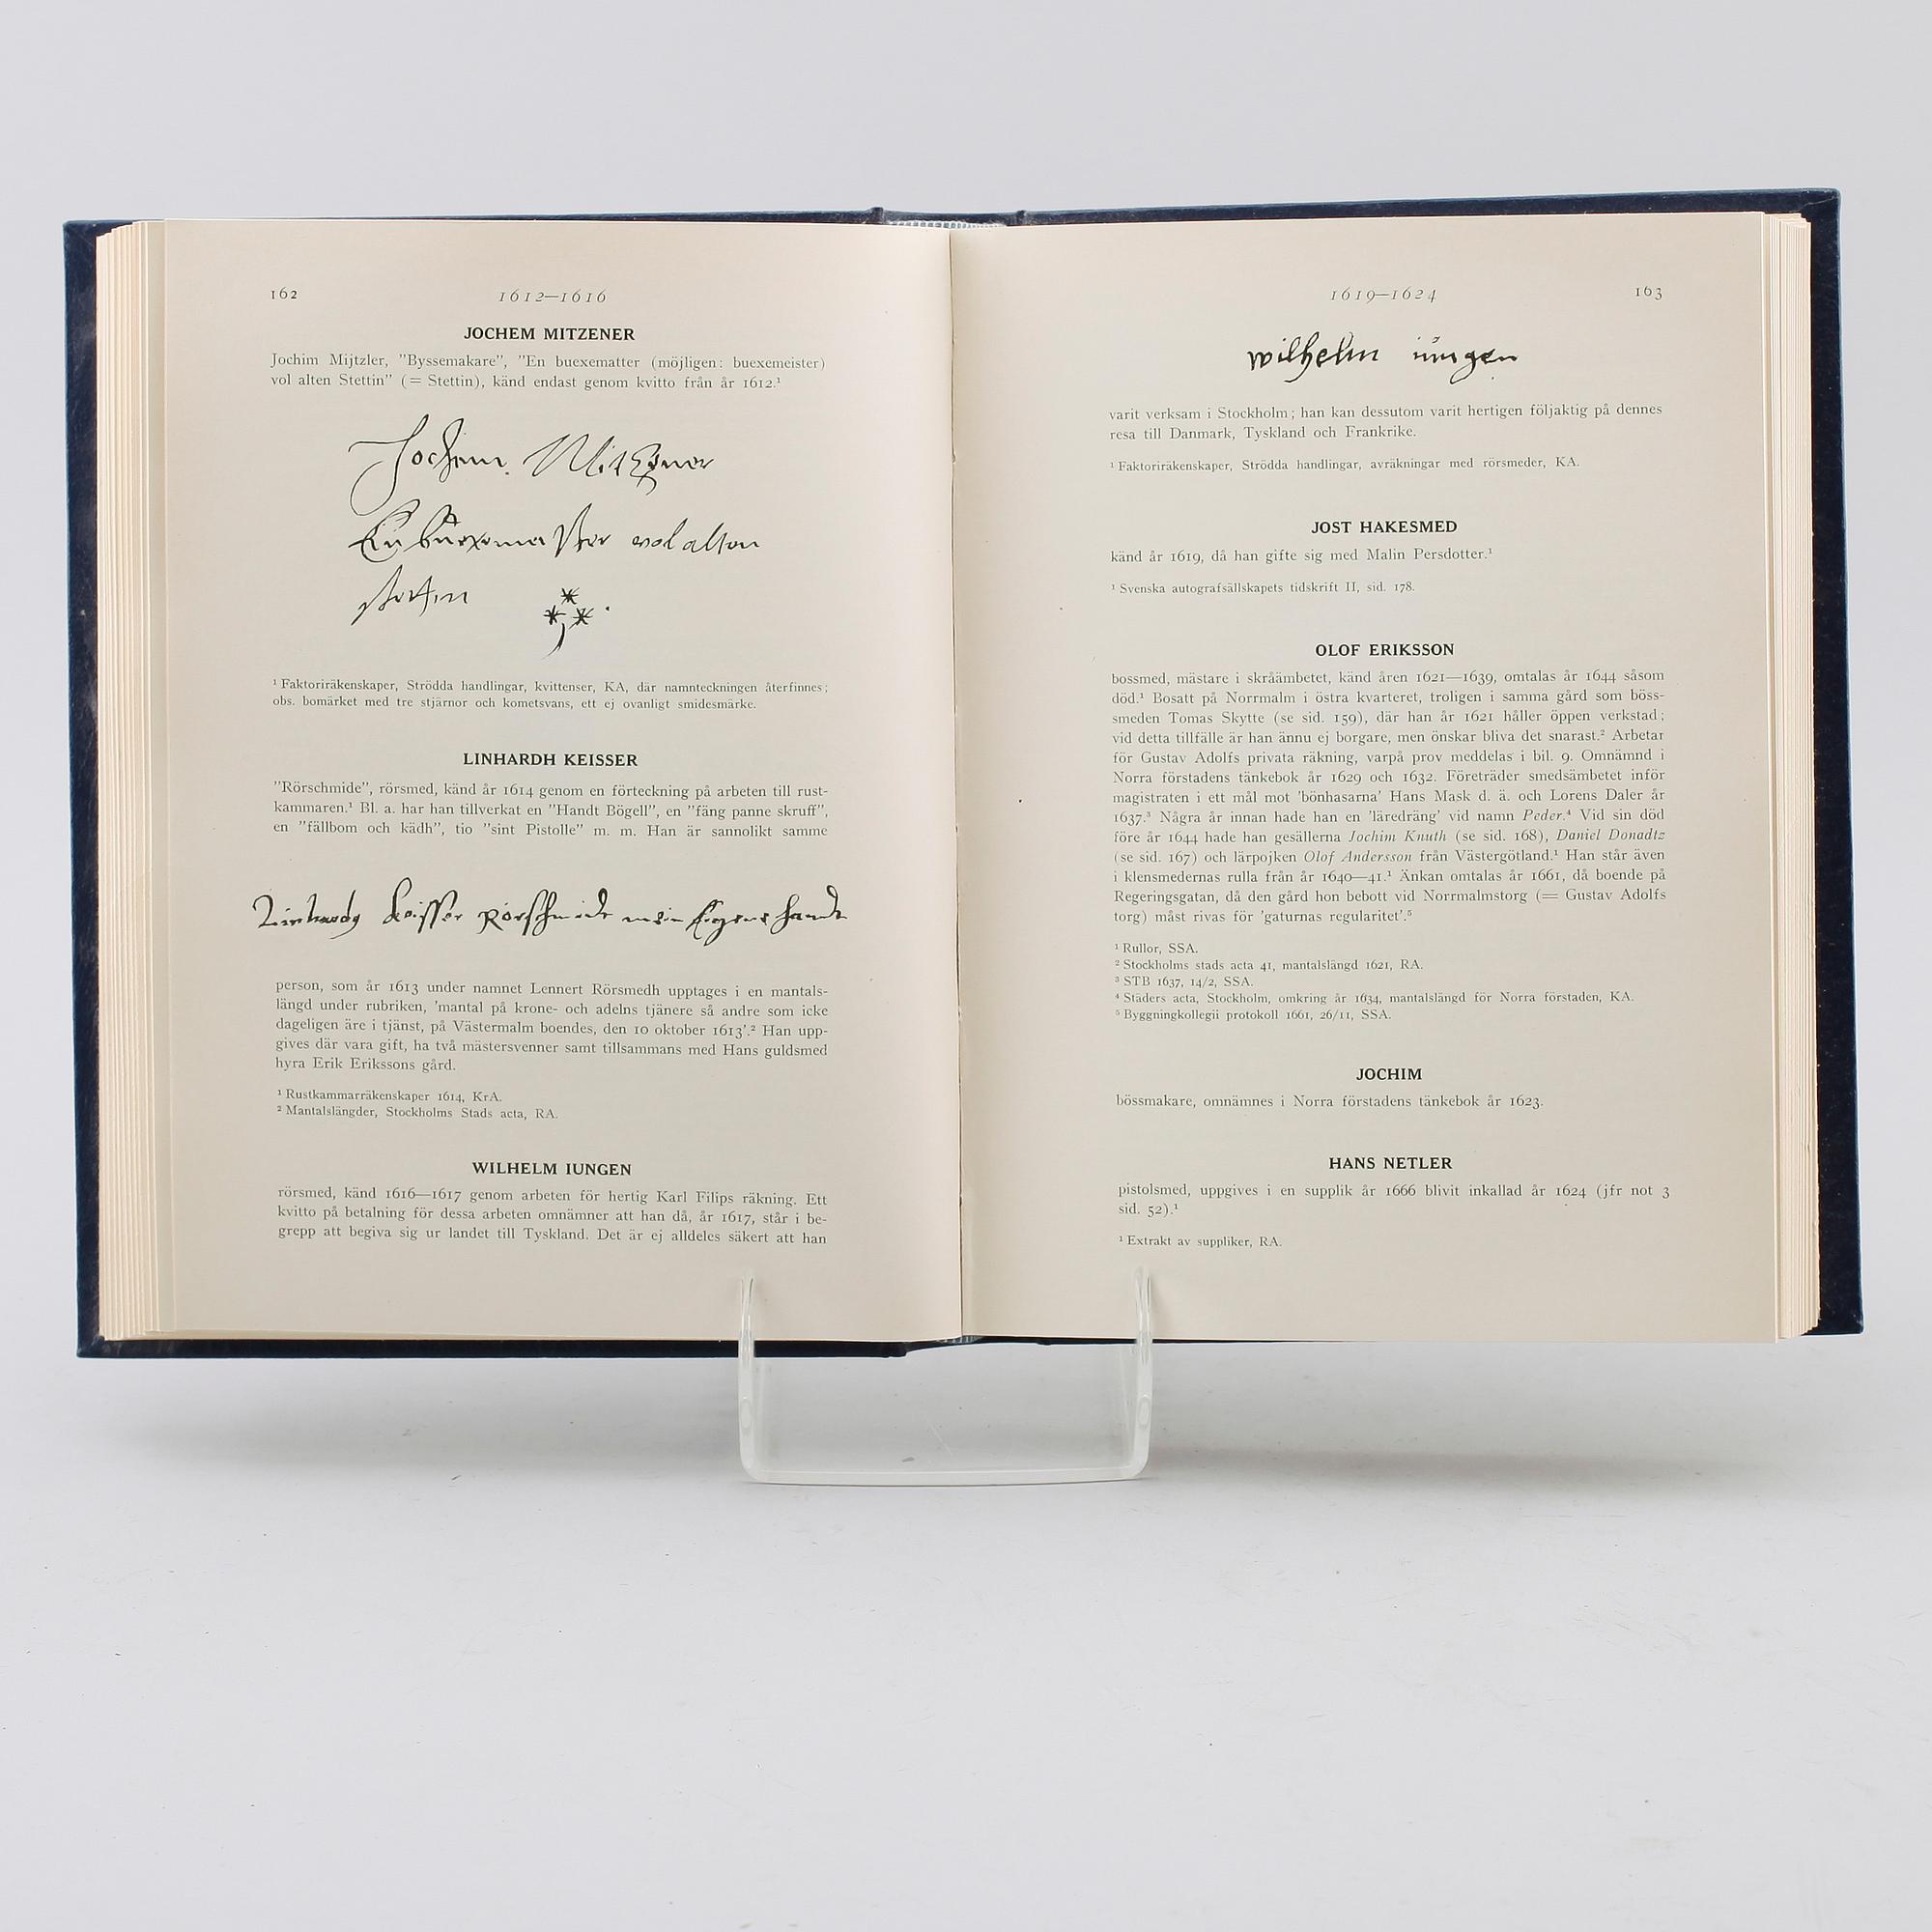 162
1612—1616
JOCHEM MITZENER
Jochim Mijtzler, ”Byssemakare”, ”En buexematter (möjligen: buexemeister)
vol alten Stettin” (= Stettin), känd endast genom kvitto från år 1612.¹
Jochim Mitzner
En buexmeister vol alten
stettin
¹ Faktoriräkenskaper, Strödda handlingar, kvittenser, KA, där namnteckningen återfinnes;
obs. bomärket med tre stjärnor och kometsvans, ett ej ovanligt smidesmärke.
LINHARDH KEISSER
”Rörschmide”, rörsmed, känd år 1614 genom en förteckning på arbeten till rust-
kammaren.¹ Bl. a. har han tillverkat en ”Handt Bögell”, en ”fäng panne skruff”,
en ”fällbom och kädh”, tio ”sint Pistolle” m. m. Han är sannolikt samme
Linhardh Keisser Rörschmide mein Eigene handt
person, som år 1613 under namnet Lennert Rörsmedh upptages i en mantals-
längd under rubriken, 'mantal på krone- och adelns tjänere så andre som icke
dageligen äre i tjänst, på Västermalm boendes, den 10 oktober 1613'.² Han upp-
gives där vara gift, ha två mästersvenner samt tillsammans med Hans guldsmed
hyra Erik Erikssons gård.
¹ Rustkammarräkenskaper 1614, KrA.
² Mantalslängder, Stockholms Stads acta, RA.
WILHELM IUNGEN
rörsmed, känd 1616—1617 genom arbeten för hertig Karl Filips räkning. Ett
kvitto på betalning för dessa arbeten omnämner att han då, år 1617, står i be-
grepp att begiva sig ur landet till Tyskland. Det är ej alldeles säkert att han
1619—1624
163
wilhelm iungen
varit verksam i Stockholm; han kan dessutom varit hertigen följaktig på dennes
resa till Danmark, Tyskland och Frankrike.
¹ Faktoriräkenskaper, Strödda handlingar, avräkningar med rörsmeder, KA.
JOST HAKESMED
känd år 1619, då han gifte sig med Malin Persdotter.¹
¹ Svenska autografsällskapets tidskrift II, sid. 178.
OLOF ERIKSSON
bossmed, mästare i skråämbetet, känd åren 1621—1639, omtalas år 1644 såsom
död.¹ Bosatt på Norrmalm i östra kvarteret, troligen i samma gård som böss-
smeden Tomas Skytte (se sid. 159), där han år 1621 håller öppen verkstad;
vid detta tillfälle är han ännu ej borgare, men önskar bliva det snarast.² Arbetar
för Gustav Adolfs privata räkning, varpå prov meddelas i bil. 9. Omnämnd i
Norra förstadens tänkebok år 1629 och 1632. Företräder smedsämbetet inför
magistraten i ett mål mot 'bönhasarna' Hans Mask d. ä. och Lorens Daler år
1637.³ Några år innan hade han en 'läredräng' vid namn Peder.⁴ Vid sin död
före år 1644 hade han gesällerna Jochim Knuth (se sid. 168), Daniel Donadtz
(se sid. 167) och lärpojken Olof Andersson från Västergötland.¹ Han står även
i klensmedernas rulla från år 1640—41.¹ Änkan omtalas år 1661, då boende på
Regeringsgatan, då den gård hon bebott vid Norrmalmstorg (= Gustav Adolfs
torg) måst rivas för 'gaturnas regularitet'.⁵
¹ Rullor, SSA.
² Stockholms stads acta 41, mantalslängd 1621, RA.
³ STB 1637, 14/2, SSA.
⁴ Städers acta, Stockholm, omkring år 1634, mantalslängd för Norra förstaden, KA.
⁵ Byggningkollegii protokoll 1661, 26/11, SSA.
JOCHIM
bössmakare, omnämnes i Norra förstadens tänkebok år 1623.
HANS NETLER
pistolsmed, uppgives i en supplik år 1666 blivit inkallad år 1624 (jfr not 3
sid. 52).¹
¹ Extrakt av suppliker, RA.